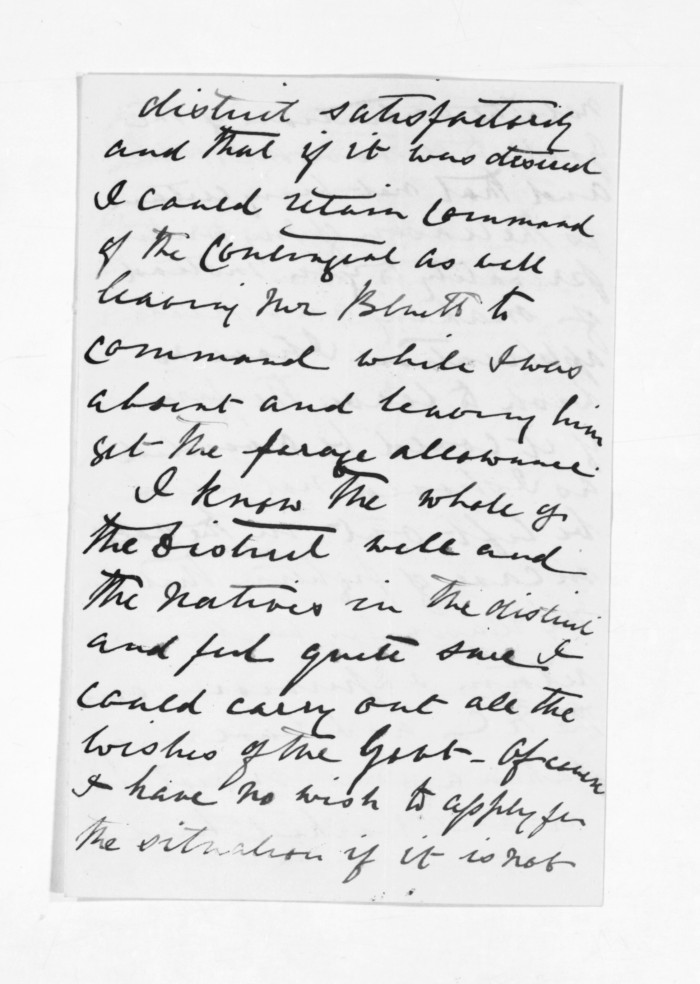 district satisfactorily
and that if it was desired
I could retain command
of the Contingent as well
leaving Mr Bluett to
command while I was
absent and leaving him
get the forage allowance.
I know the whole of
the District well and
the Natives in the district
and feel quite sure I
could carry out all the
wishes of the Govt - Of course
I have no wish to apply for
the situation if it is not